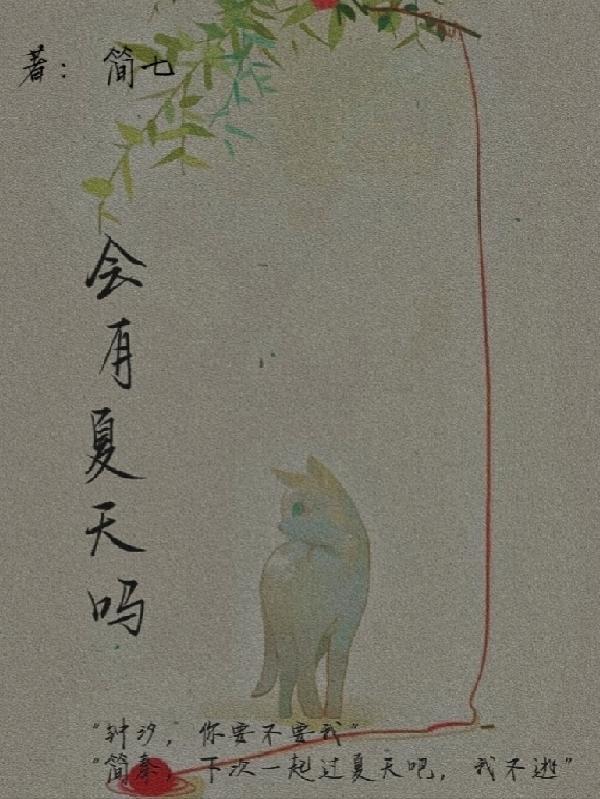 著：简七
会有夏天吗
"钟汐，你要不要我"
"简秦，下次一起过夏天吧，我不逃"